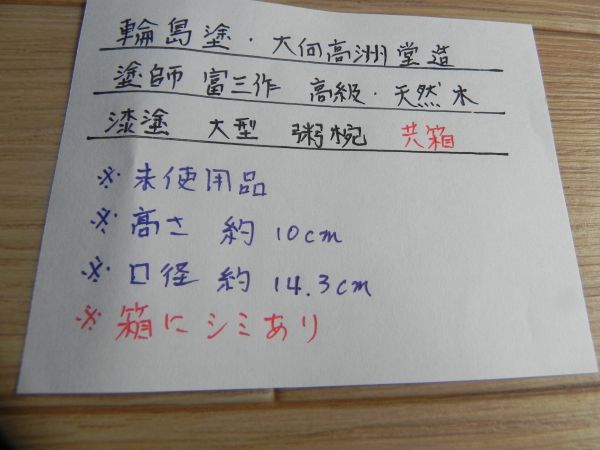 輪島塗・大向高洲堂造
塗師 富三作 高級・天然木
漆塗 大型 粥椀 共箱
※未使用品
※高さ 約10cm
※口径 約14.3cm
※箱にシミあり